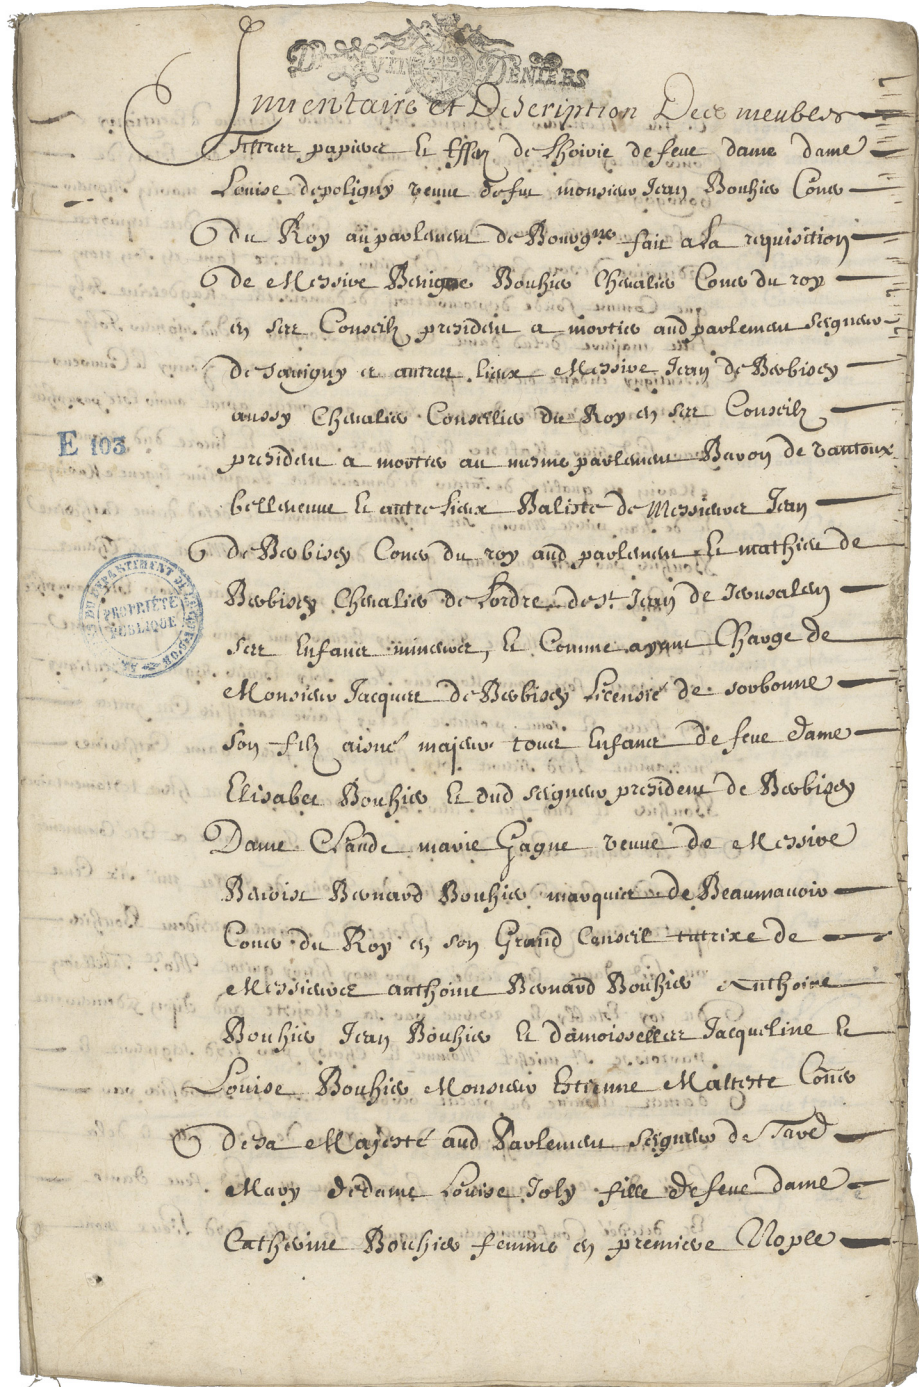 DENIERS
Inventaire et Description Des meubles
Tiltres papiers Et Effetz de Lhoirie de feue dame dame
Louise depoligny veuve defut monsieur Jean Bouhier Coner
du Roy au parlement de Bourgne fait a La requisition
de Messire Benigne Bouhier Chevalier Coner du roy
en ses Conseilz president a mortier aud parlement seigneur
de savigny et autres lieux Messire Jean de Berbisey
aussy Chevalier Conseiller du Roy en ses Conseilz
president a mortier au mesme parlement Baron de vantoux
E 103
belleneuve Et autre Lieux Baliste de Messieurs Jean
de Berbisey Coner du roy aud parlement Et mathieu de
Berbisey Chevalier de Lordre de st Jean de Jerusalem
PROPRIÉTÉ
PUBLIQUE
ses Enfans mineurs, Et Comme ayant Charge de
Monsieur Jacques de Berbisey Licensié de sorbonne
son filz aisné majeur tous Enfans de feue dame
Elisabet Bouhier Et dud seigneur president de Berbisey
Dame Claude marie Gagne veuve de Messire
Benoist Bernard Bouhier marquis de Beaumanoir
Coner du Roy en son Grand Conseil tutrixe de
Messieurs anthoine Bernard Bouhier Anthoine
Bouhier Jean Bouhier Et damoisselles Jacqueline Et
Louise Bouhier Monsieur Estienne Malteste Coner
de sa Majesté aud Parlement seigneur de
Mary de dame Louise Joly fille de feue dame
Catherine Bouhier femme en premiere Nopce